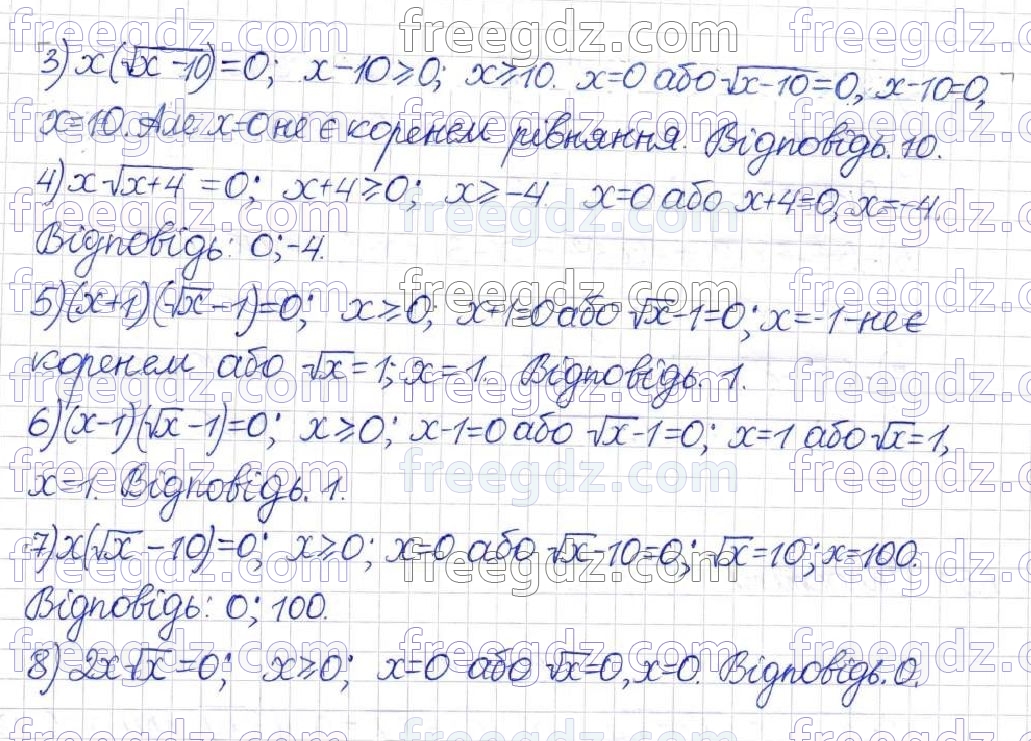 3) x(√x-10)=0; x-10≥0; x≥10. x=0 або √x-10=0, x-10=0,
x=10. Але x=0 не є коренем рівняння. Відповідь. 10.
4) x√x+4 =0; x+4≥0; x≥-4. x=0 або x+4=0; x=-4.
Відповідь: 0;-4.
5) (x+1)(√x-1)=0; x≥0; x+1=0 або √x-1=0; x=-1-не є
коренем або √x=1; x=1. Відповідь. 1.
6) (x-1)(√x-1)=0; x≥0; x-1=0 або √x-1=0; x=1 або √x=1,
x=1. Відповідь. 1.
7) x(√x-10)=0; x≥0; x=0 або √x-10=0; √x=10; x=100.
Відповідь: 0; 100.
8) 2x√x=0; x≥0; x=0 або √x=0, x=0. Відповідь. 0.